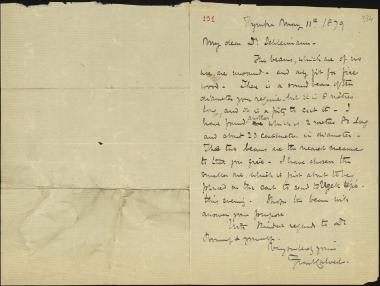 151
334
May 11th 1879
My dear Dr Schliemann -
The beams, which are of no
use, are unsound - and only fit for fire
wood. There is a sound beam of the
diameter you require, but it is 8 metres
long, and it is a pity to cut it - I
another
have found one which is 2 metres 80 long
and about 23 centimetres in diameter -
These two beams are the nearest
to what you - I have chosen the
smaller one which is just about to be
placed on the cart to send to
this evening. I hope the beam will
answer your purpose
With kindest regards to
and yourself
Very sincerely yours
Frank Calvert.